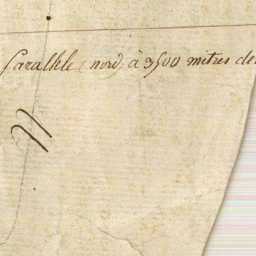 Parallele (nord) à 3500 mètres de